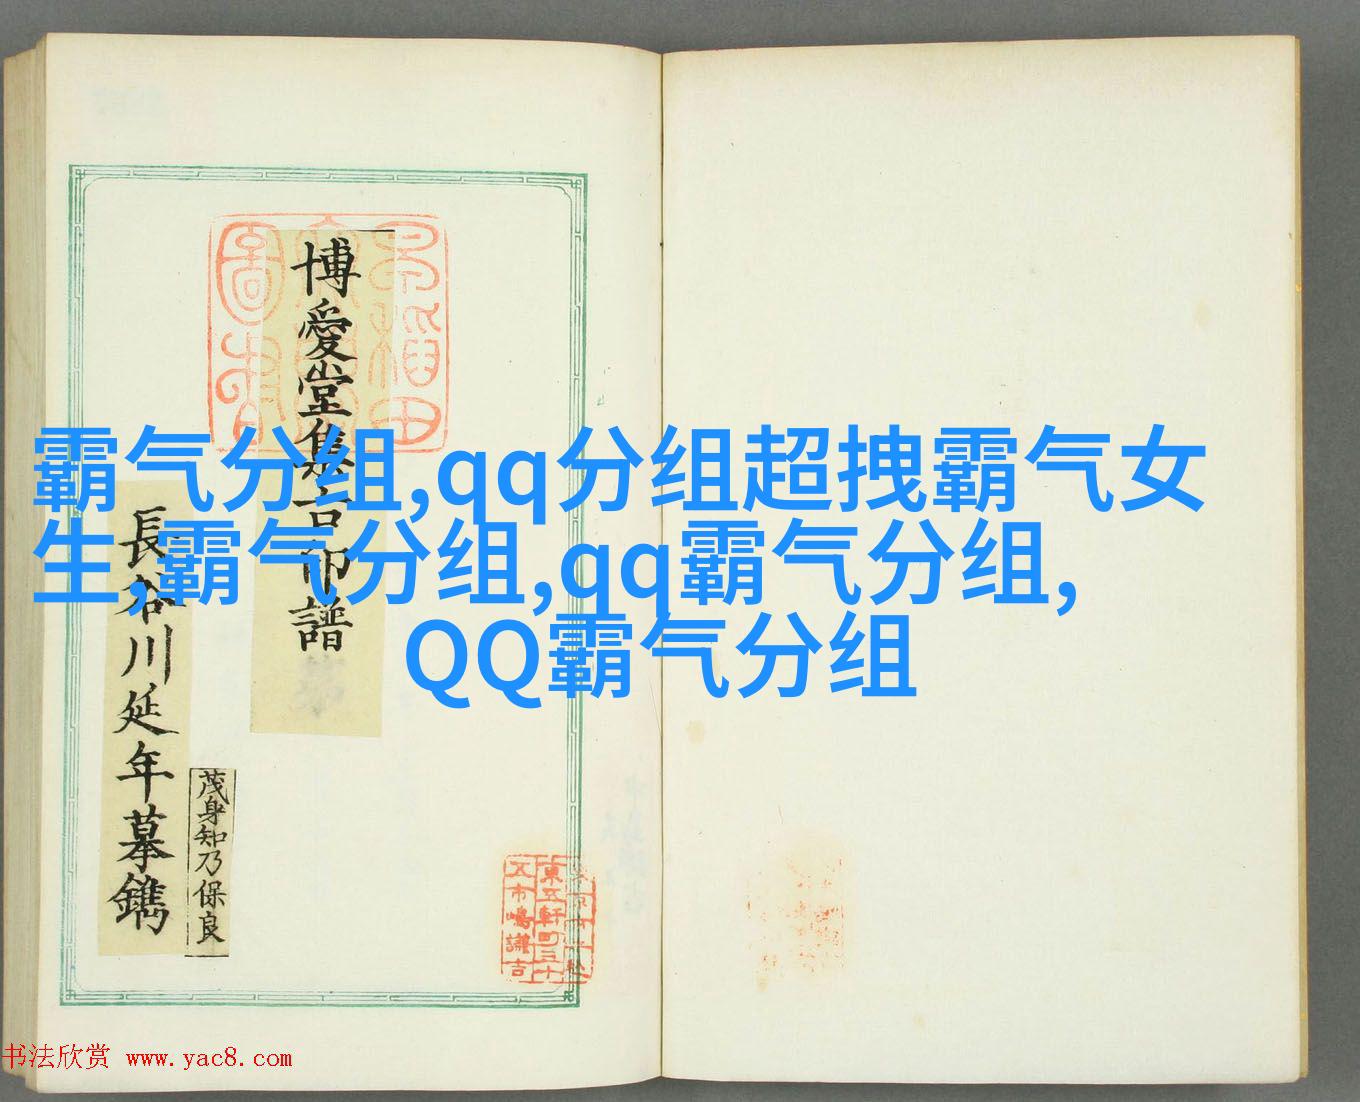 博愛堂集古印譜
長谷川延年摹鐫
茂身知乃保良
霸气分组,qq分组超拽霸气女
生,霸气分组,qq霸气分组,
QQ霸气分组
東五軒町三十
五市嶋謙吉
书法欣赏 www.yac8.com